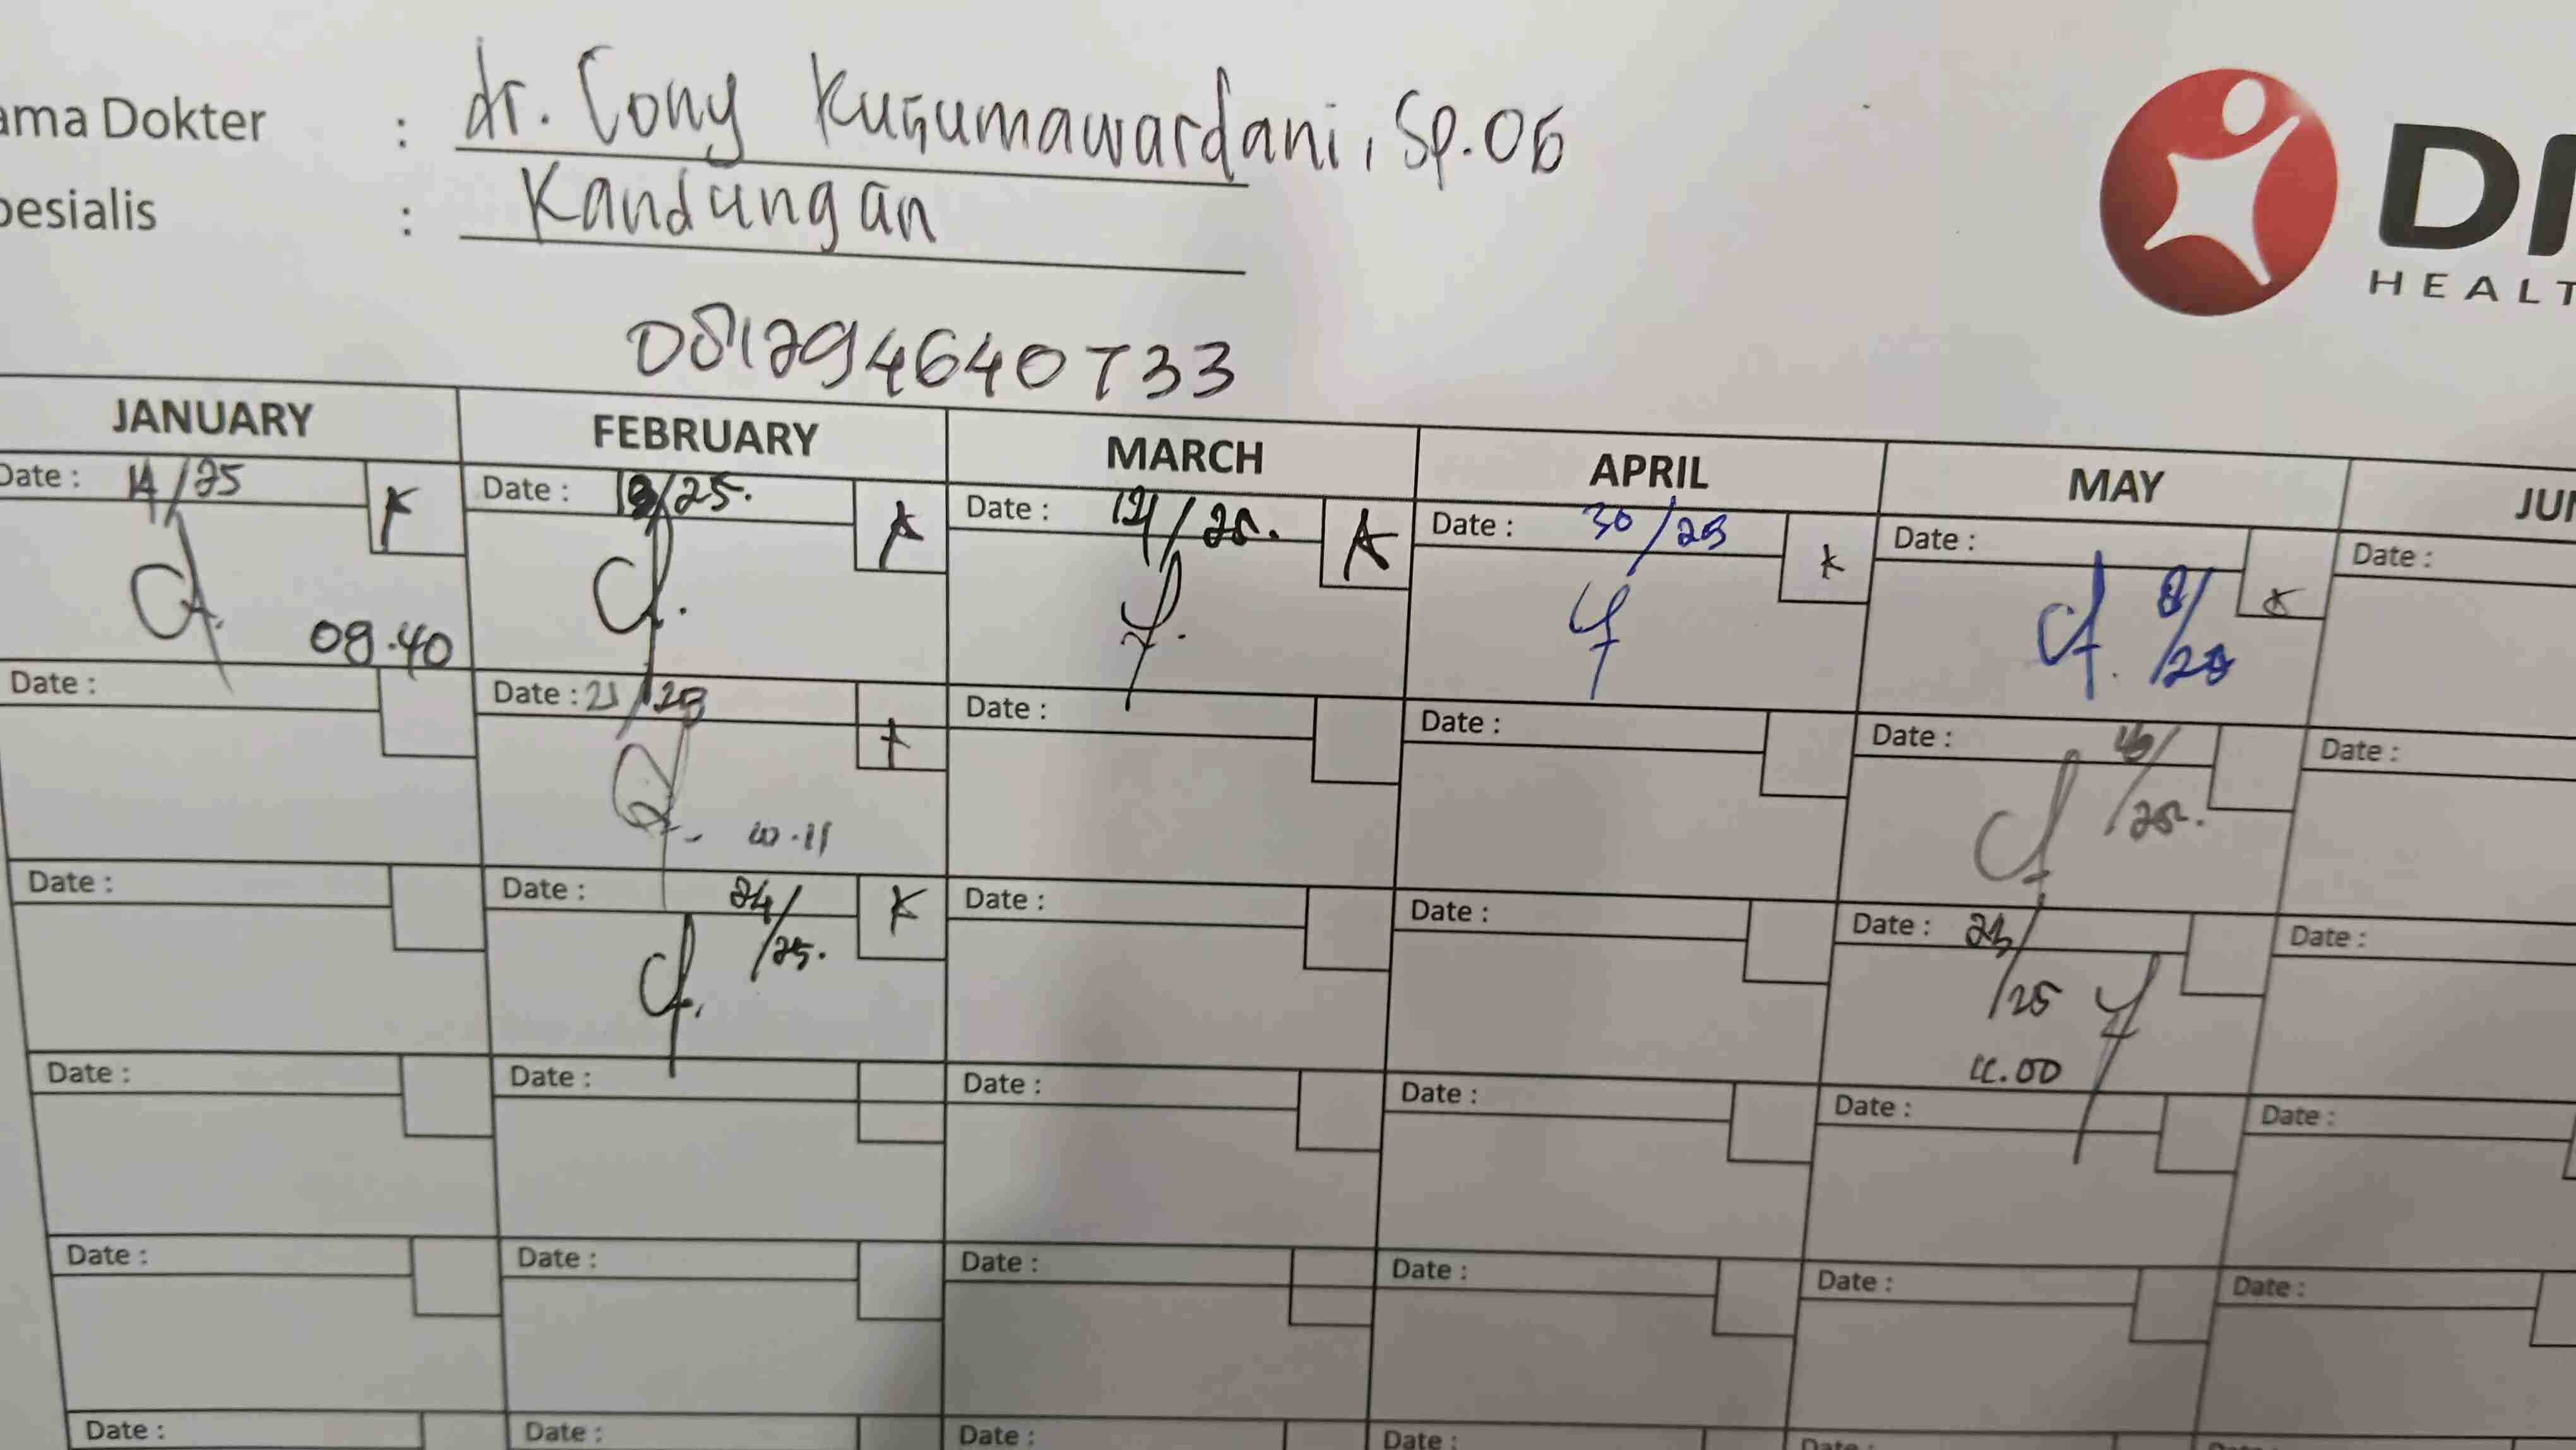 ama Dokter : dr. Cony Kusumawardani, Sp.OG
pesialis : Kandungan
DI
HEALT
081294640733
JANUARY FEBRUARY MARCH APRIL MAY JUN
Date : 14/25 Date : /25. Date : Date : 30/25 Date : Date :
09.40 8/25
Date : Date : 21/25 Date : Date : Date : Date :
10.11 /25.
Date : Date : 24/25. Date : Date : Date : 23/25 Date :
11.00
Date : Date : Date : Date : Date : Date :
Date : Date : Date : Date : Date : Date :
Date : Date : Date : Date : Date :